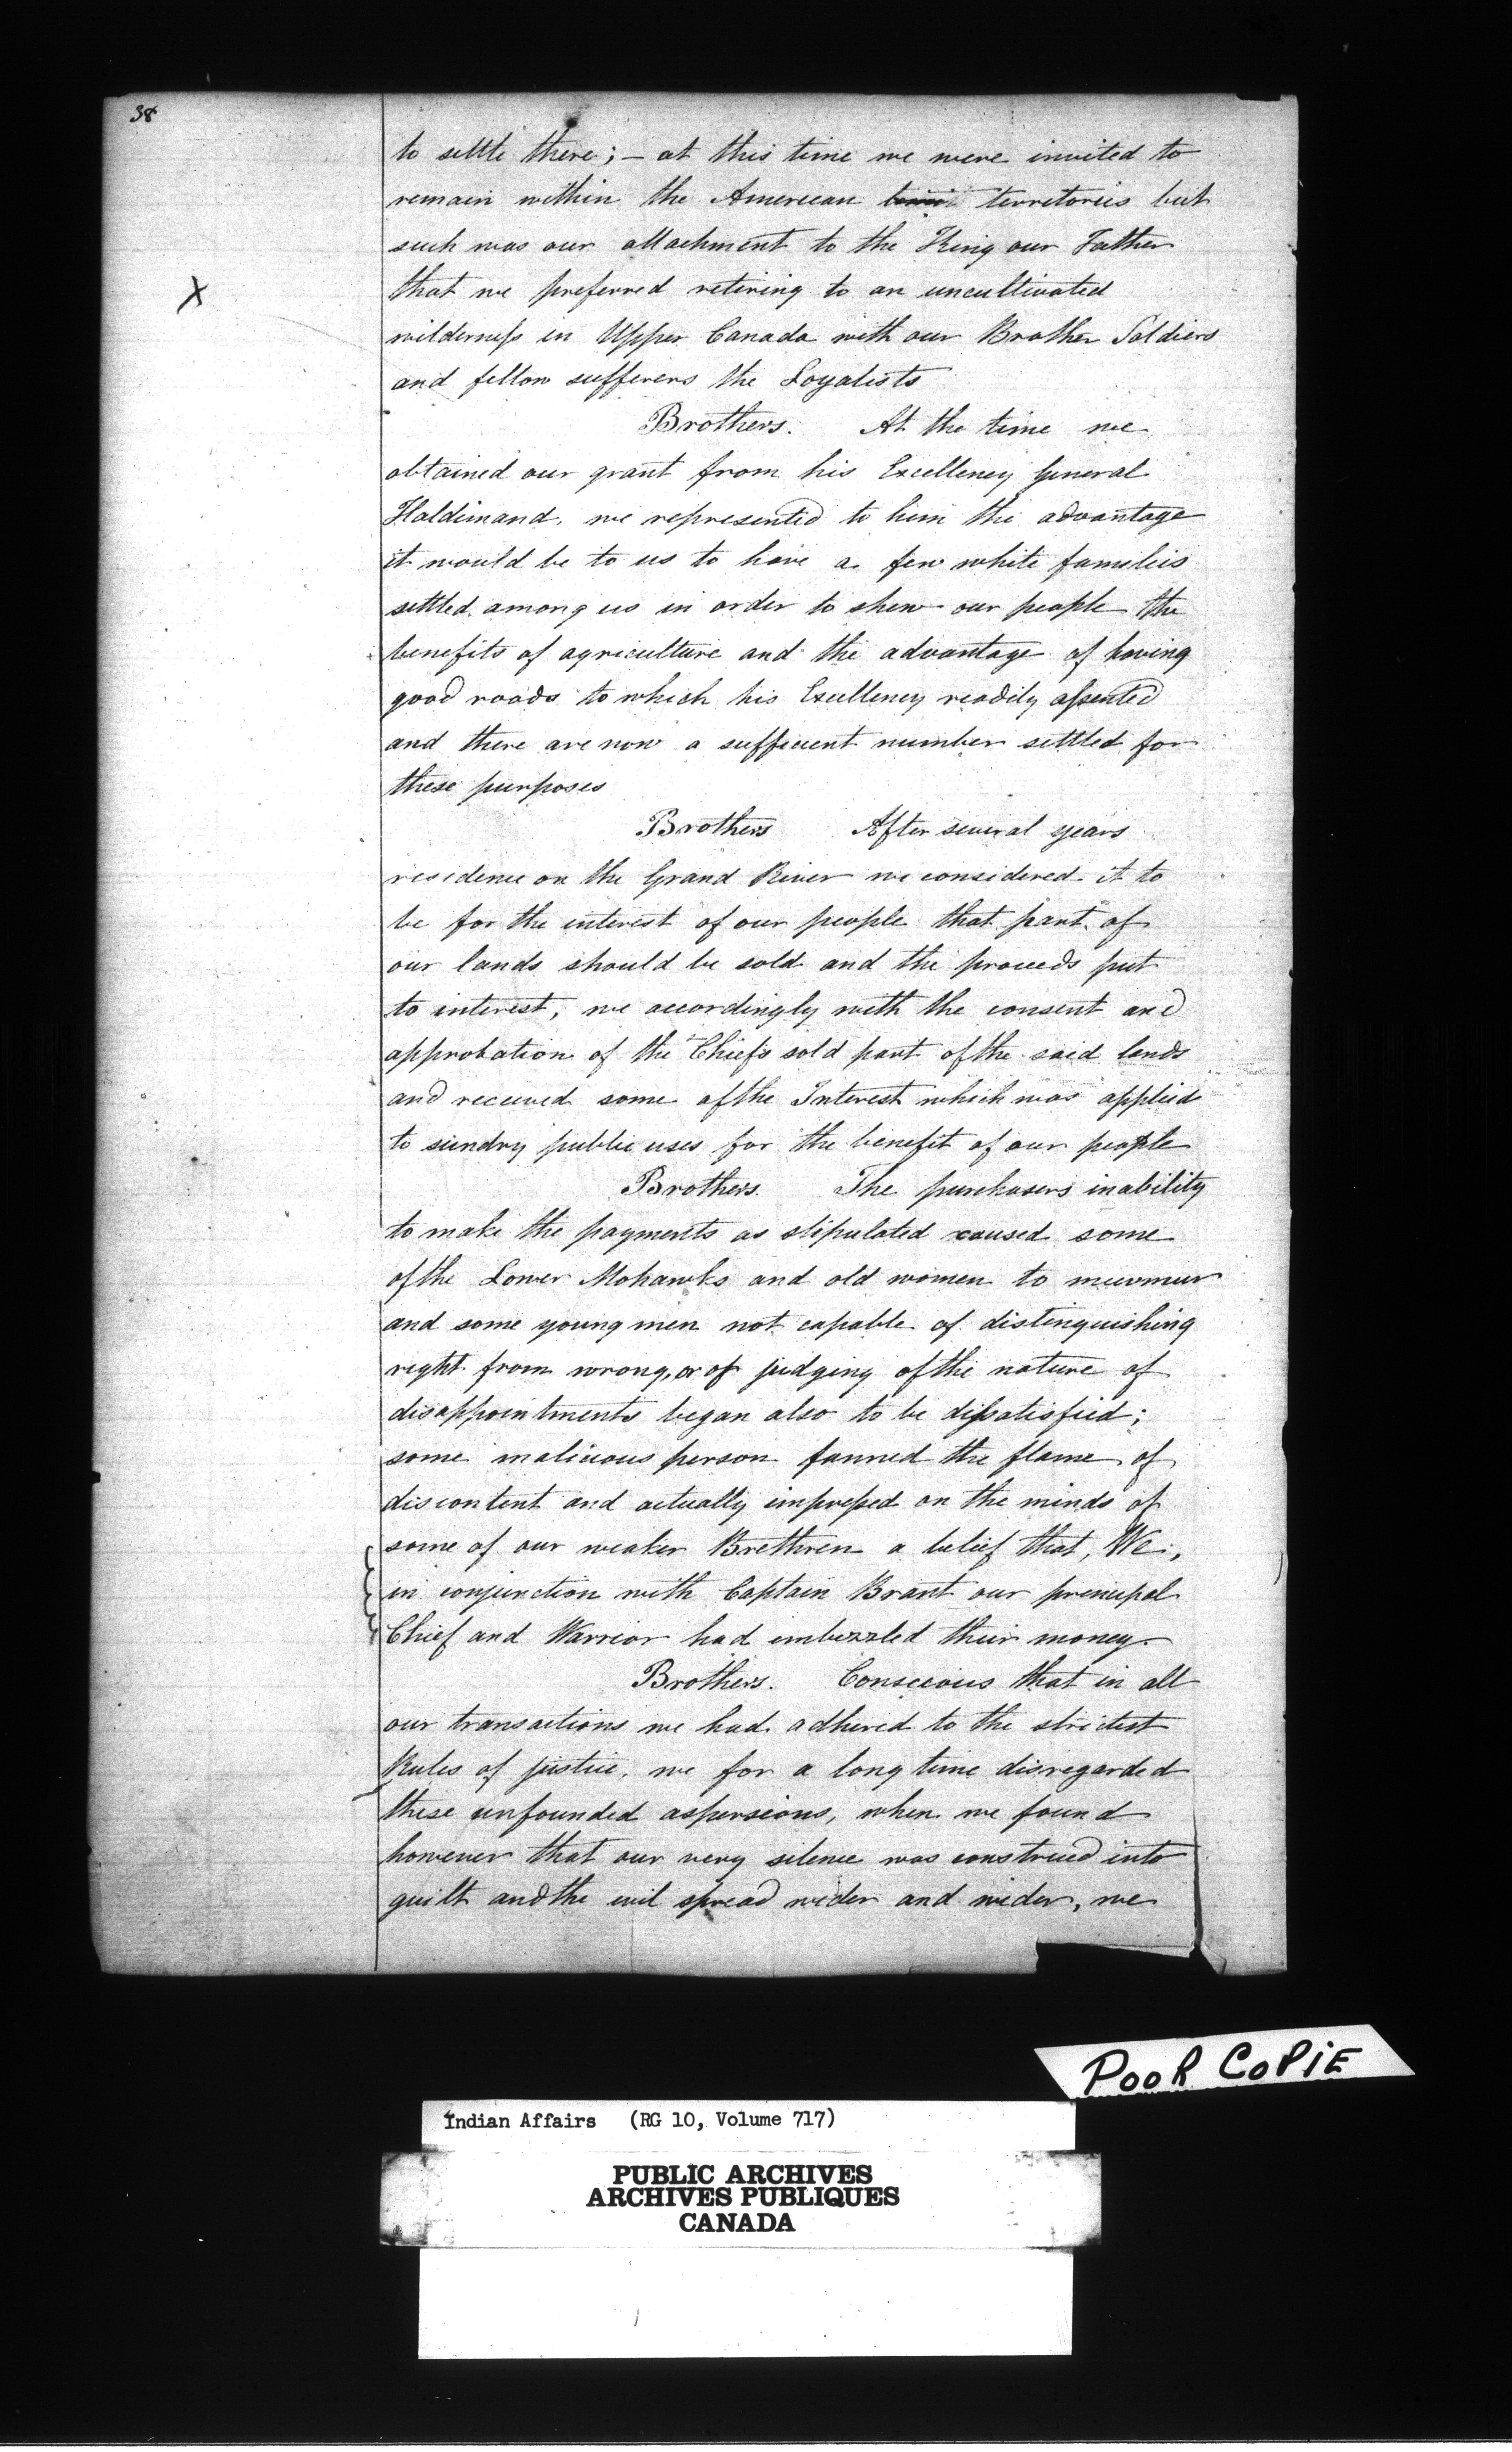 38
to settle there; – at this time we were invited to
remain within the American territories but
such was our attachment to the King our Father
X
that we preferred retiring to an uncultivated
wilderness in Upper Canada with our Brother Soldiers
and fellow sufferers the Loyalists
Brothers. At the time we
obtained our grant from his Excellency General
Haldimand, we represented to him the advantage
it would be to us to have a few white families
settled among us in order to shew our people the
benefits of agriculture and the advantage of having
good roads to which his Excellency readily assented
and there are now a sufficient number settled for
these purposes
Brothers After several years
residence on the Grand River we considered it to
be for the interest of our people that part of
our lands should be sold and the proceeds put
to interest, we accordingly with the consent and
approbation of the Chiefs sold part of the said lands
and received some of the Interest which was applied
to sundry public uses for the benefit of our people
Brothers. The purchasers inability
to make the payments as stipulated caused some
of the Lower Mohawks and old women to murmur
and some young men not capable of distinguishing
right from wrong, or of judging of the nature of
disappointments began also to be dissatisfied;
some malicious person fanned the flame of
discontent and actually impressed on the minds of
some of our weaker Brethren a belief that, We,
in conjunction with Captain Brant our principal
Chief and Warrior had embezzled their money.
Brothers. Conscious that in all
our transactions we had adhered to the strictest
Rules of justice, we for a long time disregarded
these unfounded aspersions, when we found
however that our very silence was construed into
guilt and the evil spread wider and wider, we
POOR COPIE
Indian Affairs (RG 10, Volume 717)
PUBLIC ARCHIVES
ARCHIVES PUBLIQUES
CANADA